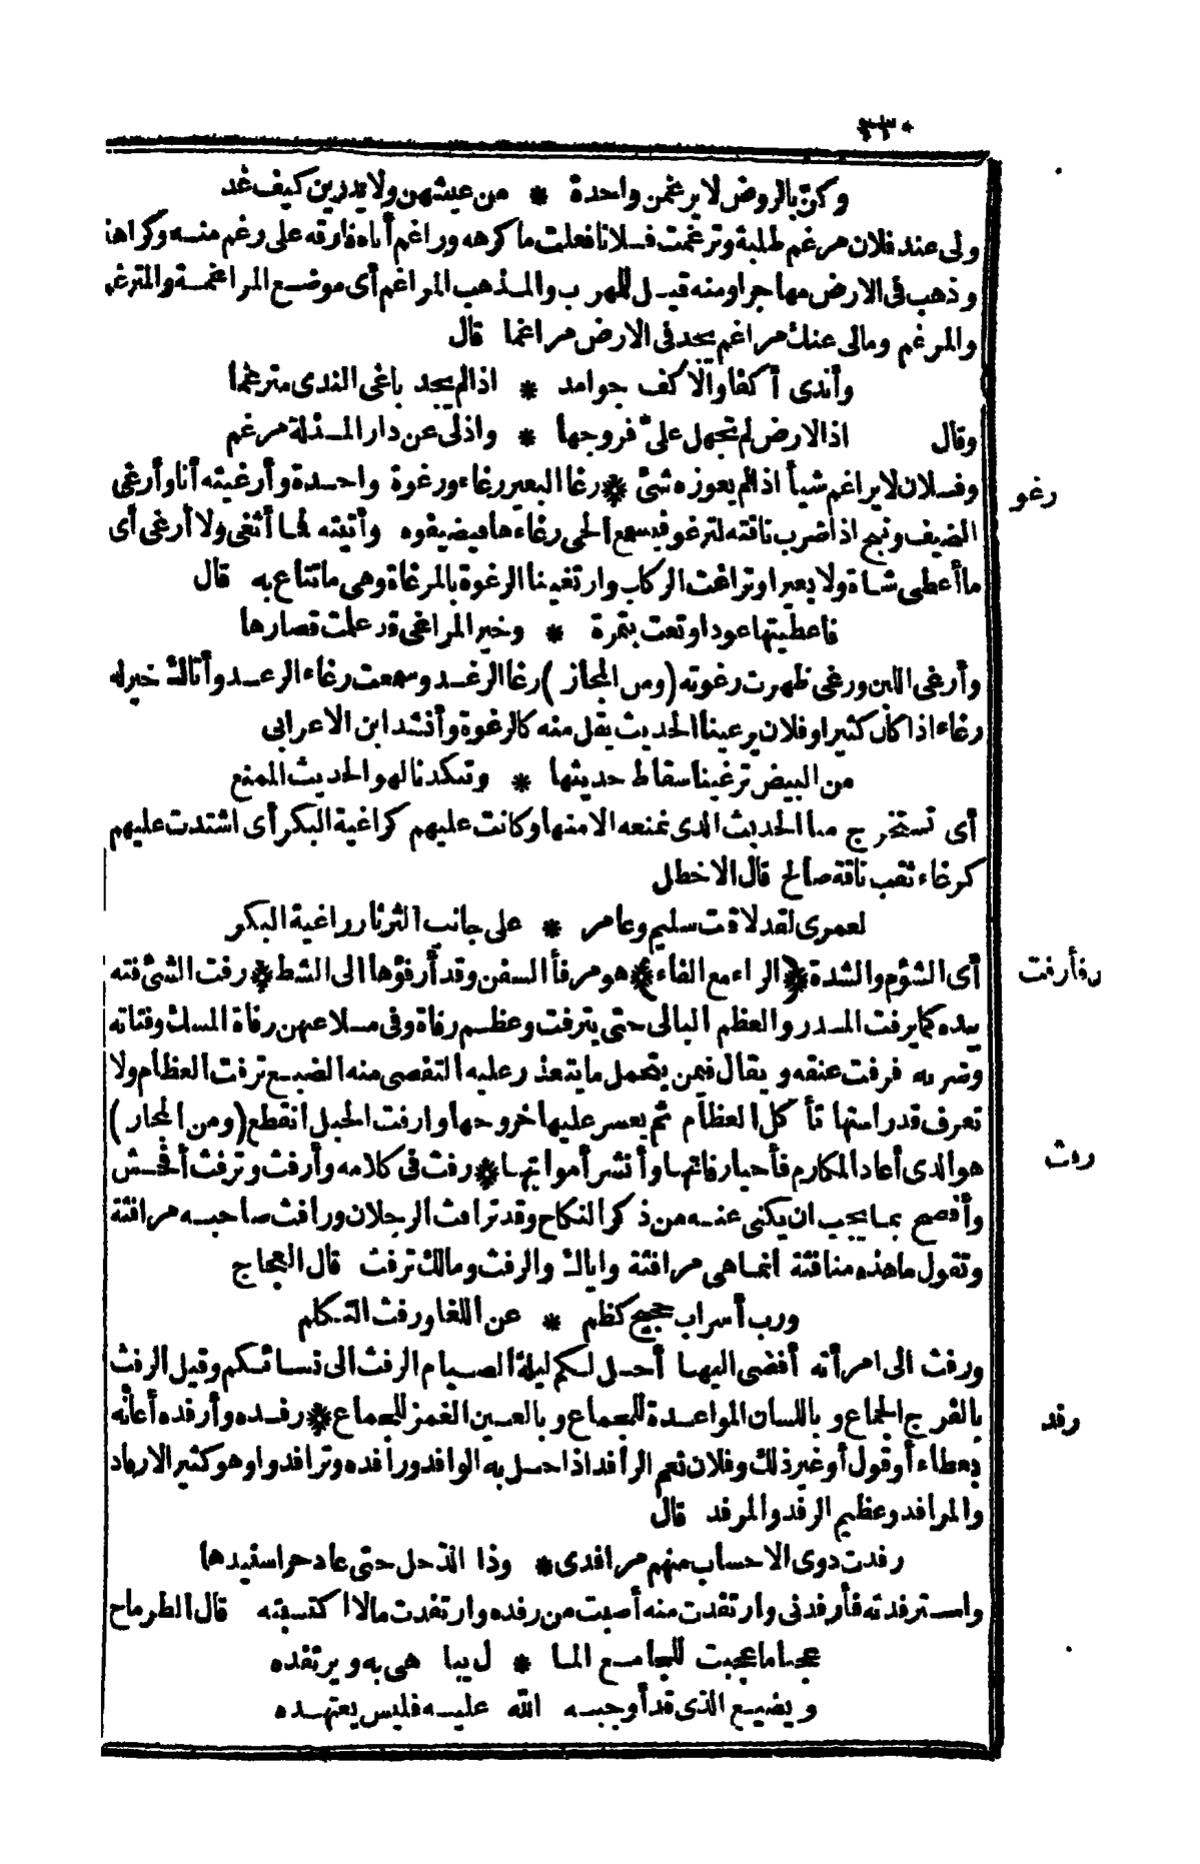 ٢٣٠
وكنّ بالروض لا يرغمن واحدة * من عيشهن ولا يدرين كيف غد
ولى عند فلان مرغم طلبة وترغمت فلانا فعلت ما كرهه وراغم أباه فارقه على رغم منه وكراهة
وذهب فى الارض مهاجرا ومنه قيل للهرب والمذهب المراغم أى موضع المراغمة والمترغم
والمرغم ومالى عنك مراغم يجد فى الارض مراغما قال
وأندى أكفا والاكف جوامد * اذا لم يجد باغى الندى مترغما
وقال اذا الارض لم تجهل علىّ فروجها * واذ لى عن دار المذلة مرغم
وفلان لا يراغم شيأ اذا لم يعوزه شئ * رغا البعير رغاء ورغوة واحدة وأرغيته أنا وأرغى
رغو
الضيف ونبح اذا ضرب ناقته لترغو فيسمع الحى رغاءها فيضيفوه وأتيته فما أثغى ولا أرغى أى
ما أعطى شاة ولا بعيرا وتراغت الركاب وارتغينا الرغوة بالمرغاة وهى ما تناع به قال
فاعطيتها عودا وتعت بتمرة * وخير المراغى قد علمت قصارها
وأرغى اللبن ورغى ظهرت رغوته (ومن المجاز) رغا الرعد وسمعت رغاء الرعد وأتاك خير له
رغاء اذا كان كثيرا وفلان يرغينا الحديث يقل منه كالرغوة وأنشد ابن الاعرابى
من البيض ترغينا سقاط حديثها * وتنكدنا لهو الحديث الممنع
أى تستخرج منا الحديث الذى نمنعه الا منها وكانت عليهم كراغية البكر أى اشتدت عليهم
كرغاء ثقب ناقة صالح قال الاخطل
لعمرى لقد لاقت سليم وعامر * على جانب الثرثار راغية البكر
أى الشؤم والشدة * (الراء مع الفاء) * هو مرفأ السفن وقد أرفؤها الى الشط * رفت الشئ فته
رفأ رفت
بيده كما يرفت المدر والعظم البالى حتى يترفت وعظم رفاة وفى ملاعبهن رفاة المسك وفتاته
وضربه فرفت عنقه ويقال فيمن يتحمل ما يتعذر عليه التفصى منه الضبع ترفت العظام ولا
تعرف قدر استها تأكل العظام ثم يعسر عليها خروجها وارفت الحبل انقطع (ومن المجاز)
هو الذى أعاد المكارم فأحيا رفاتها وأنشر أمواتها * رفث فى كلامه وأرفث وترفث أفحش
رفث
وأفصح بما يجب ان يكنى عنه من ذكر النكاح وقد ترافث الرجلان ورافث صاحبه مرافثة
وتقول ما هذه منافثة انما هى مرافثة واياك والرفث ومالك ترفث قال العجاج
ورب أسراب حجيج كظم * عن اللغا ورفث التكلم
ورفث الى امرأته أفضى اليها أحل لكم ليلة الصيام الرفث الى نسائكم وقيل الرفث
بالفرج الجماع وباللسان المواعدة للجماع وبالعين الغمز للجماع * رفده وأرفده أعانه
رفد
بعطاء أو قول أو غير ذلك وفلان نعم الرافد اذا حل به الوافد ورافده وترافدوا وهو كثير الارفاد
والمرافد وعظيم الرفد والمرفد قال
رفدت ذوى الاحساب منهم مرافدى * وذا الذحل حتى عاد حرا سنيدها
واسترفدته فأرفدنى وارتفدت منه أصبت من رفده وارتفدت مالا اكتسبته قال الطرماح
عجبا ما عجبت للجامع الما * ل يبا هى به ويرتفده
ويضيع الذى قد أوجبه الله عليه فليس يعتهده